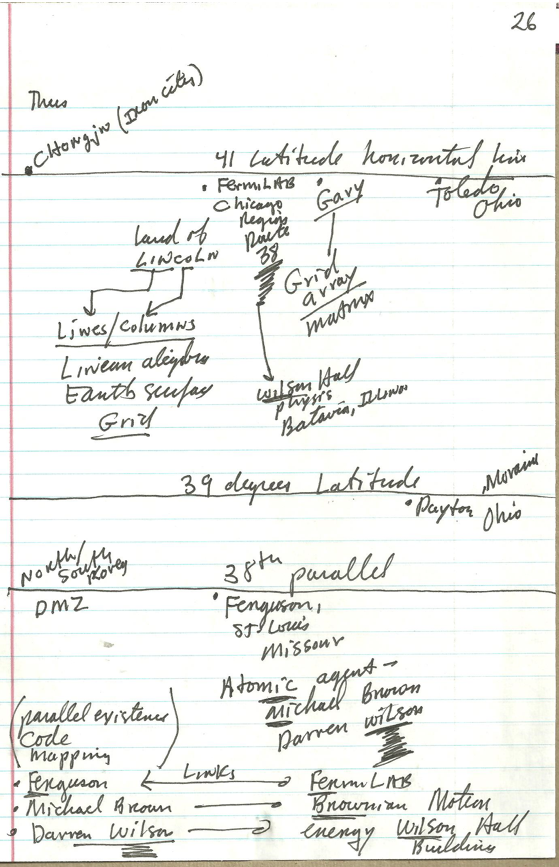 26
Thus
Chongjin (Iron cities)
41 Latitude horizontal line
FermiLAB
Chicago
Region
Route
38
Gary
Toledo
Ohio
Land of
LINCOLN
Grid
array
matrix
Lines/columns
Linear algebra
Earth surface
Grid
Wilson Hall
physics
Batavia, Illinois
39 degrees Latitude
Dayton
Moraine
Ohio
North/
South
Korea
38th parallel
DMZ
Ferguson,
St Louis
Missouri
Atomic agent -
Michael Brown
Darren Wilson
(parallel existence
Code
mapping)
Ferguson Links FermiLAB
Michael Brown Brownian Motion
Darren Wilson energy Wilson Hall
Building